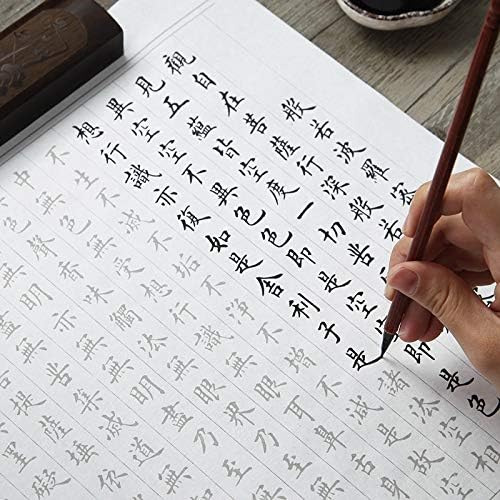 般若波羅蜜
觀自在菩薩行深般若
見五蘊皆空度一切苦
異空空不異色色即是空空即是色
想行識亦復如是舍利子是諸法空
不生不滅不垢不淨不增不減是故空
中色無受想行識無眼耳鼻舌身
色聲香味觸法無眼界乃至無
無明亦無無明盡乃至
盡無苦集滅道無
薩埵依